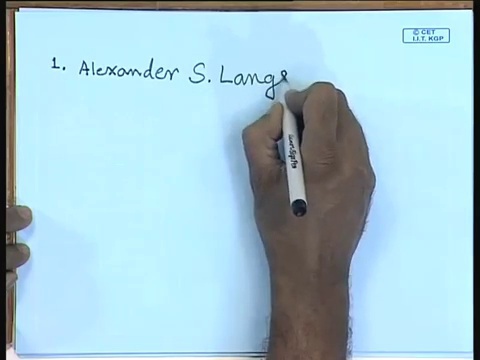 © CET
I.I.T. KGP
1. Alexander S. Lang